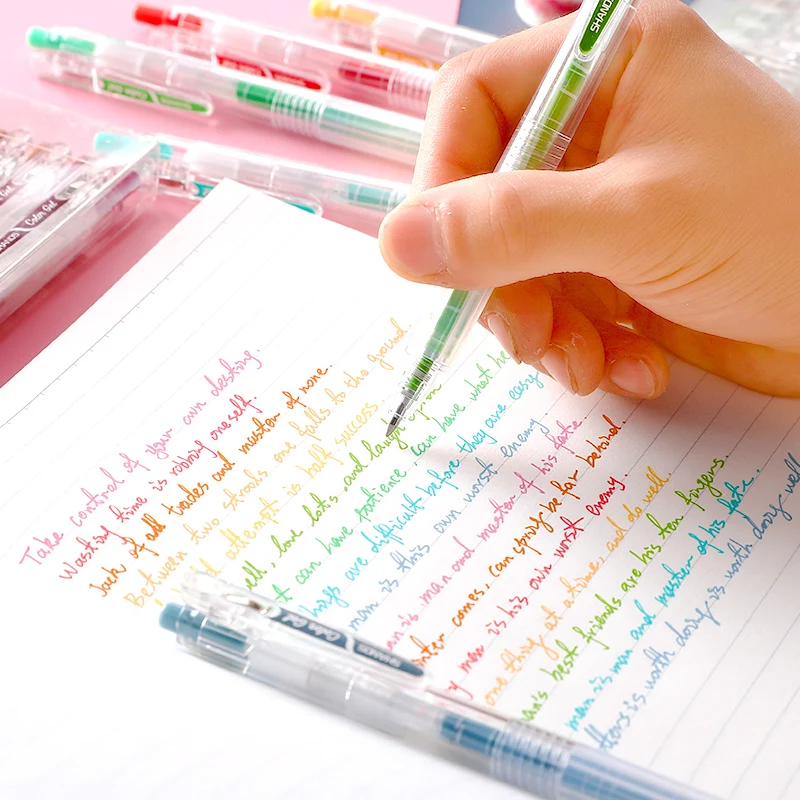 Take control of your own destiny.
Wasting time is robbing oneself.
Jack of all trades and master of none.
Between two stools one falls to the ground.
attempt is half success.
ell, love lots, and laugh often
t can have patience, can have what he
hings are difficult before they are easy
man is this own worst enemy
an is man and master of his fate.
nter comes, can spring be far behind.
y man is his own worst enemy.
one thing at a time, and do well.
an's best friends are his ten fingers.
man is man and master of his fate.
tters is worth doing is worth doing well
Color Gel SHANDS
SHAND
Color Gel